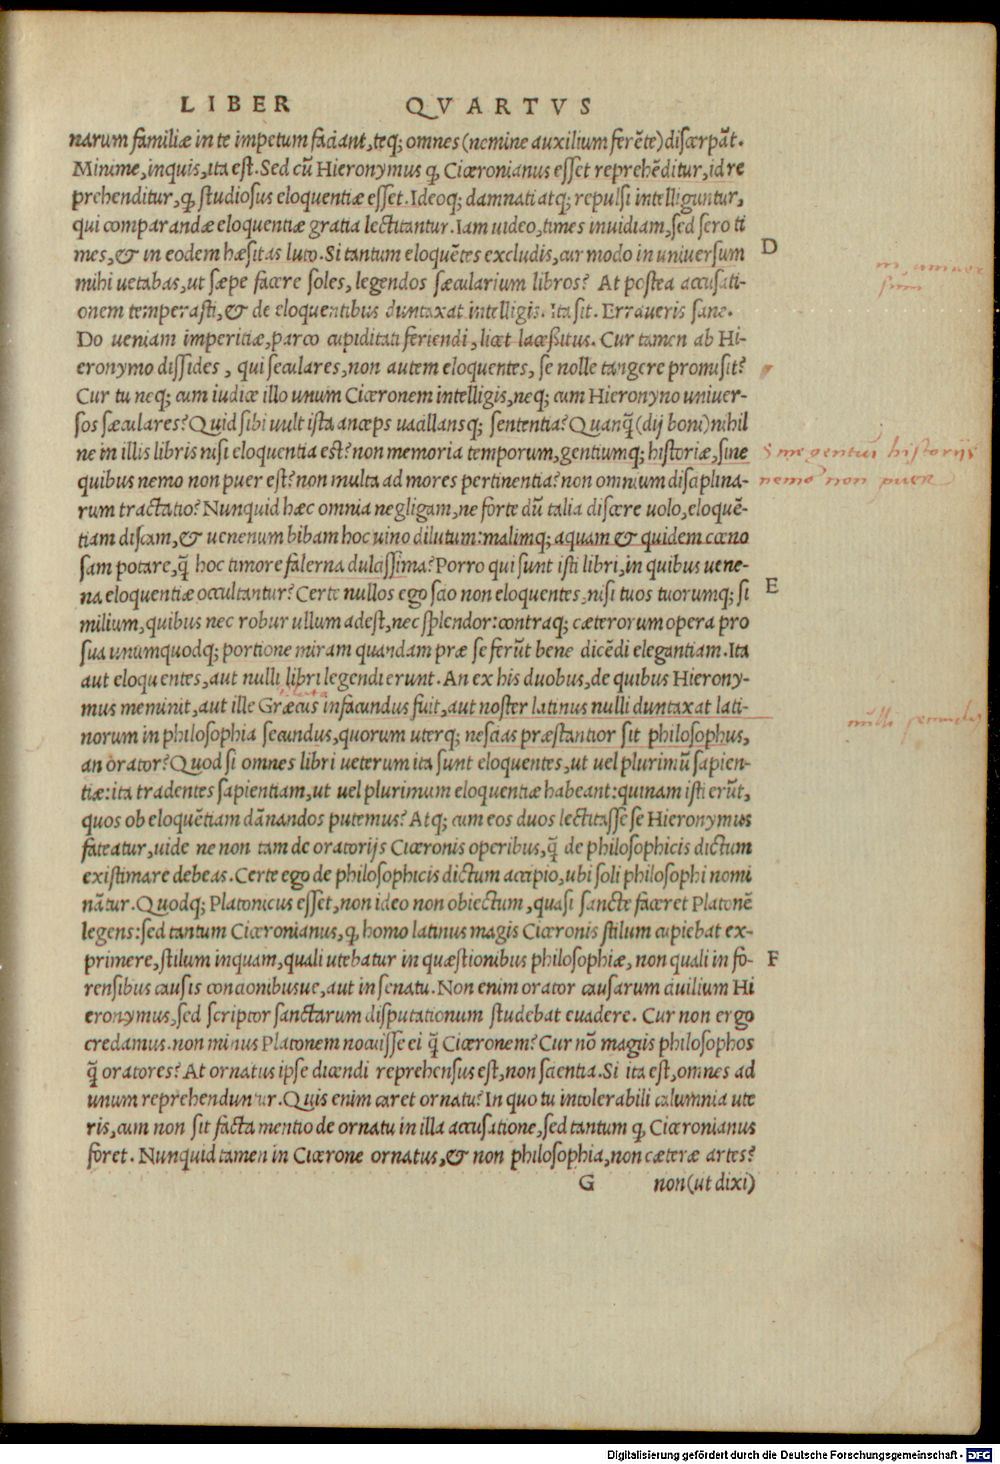 LIBER QVARTVS
narum familiæ in te impetum faciant, teq; omnes (nemine auxilium ferẽte) discerpãt.
Minime, inquis, ita est. Sed cũ Hieronymus q, Ciceronianus esset reprehẽditur, id re
prehenditur, q, studiosus eloquentiæ esset. Ideoq; damnati atq; repulsi intelliguntur,
qui comparandæ eloquentiæ gratia lectitantur. Iam uideo, times inuidiam, sed sero ti
mes, & in eodem hæsitas luto. Si tantum eloquẽtes excludis, cur modo in uniuersum
D
mihi uetabas, ut sæpe facere soles, legendos sæcularium libros? At postea accusati-
onem temperasti, & de eloquentibus duntaxat intelligis. Ita sit. Erraueris sane.
Do ueniam imperitiæ, parco cupiditati feriendi, licet lacessitus. Cur tamen ab Hi-
eronymo dissides, qui seculares, non autem eloquentes, se nolle tangere promisit?
Cur tu neq; cum iudice illo unum Ciceronem intelligis, neq; cum Hieronyno uniuer-
sos sæculares? Quid sibi uult ista anceps uacillansq; sententia? Quanq̃ (dij boni) nihil
ne in illis libris nisi eloquentia est? non memoria temporum, gentiumq; historiæ, sine
quibus nemo non puer est? non multa ad mores pertinentia? non omnium disciplina-
nemo non puer
rum tractatio? Nunquid hæc omnia negligam, ne forte dũ talia discere uolo, eloquẽ-
tiam discam, & uenenum bibam hoc uino dilutum: malimq; aquam & quidem cœno
sam potare, q̃ hoc timore falerna dulcissima? Porro qui sunt isti libri, in quibus uene-
na eloquentiæ occultantur? Certe nullos ego scio non eloquentes, nisi tuos tuorumq; si
E
milium, quibus nec robur ullum adest, nec splendor: contraq; cæterorum opera pro
sua unumquodq; portione miram quandam præ se ferũt bene dicẽdi elegantiam. Ita
aut eloquentes, aut nulli libri legendi erunt. An ex his duobus, de quibus Hierony-
mus meminit, aut ille Græcus infacundus fuit, aut noster latinus nulli duntaxat lati-
norum in philosophia secundus, quorum uterq; nescias præstantior sit philosophus,
an orator? Quod si omnes libri ueterum ita sunt eloquentes, ut uel plurimũ sapien-
tiæ: ita tradentes sapientiam, ut uel plurimum eloquentiæ habeant: quinam isti erũt,
quos ob eloquẽtiam dãnandos putemus? Atq; cum eos duos lectitasse se Hieronymus
fateatur, uide ne non tam de oratorijs Ciceronis operibus, q̃ de philosophicis dictum
existimare debeas. Certe ego de philosophicis dictum accipio, ubi soli philosophi nomi
nãtur. Quodq; Platonicus esset, non ideo non obiectum, quasi sancte faceret Platonẽ
legens: sed tantum Ciceronianus, q, homo latinus magis Ciceronis stilum cupiebat ex-
primere, stilum inquam, quali utebatur in quæstionibus philosophiæ, non quali in fo-
F
rensibus causis concionibusue, aut in senatu. Non enim orator causarum ciuilium Hi
eronymus, sed scriptor sanctarum disputationum studebat euadere. Cur non ergo
credamus non minus Platonem nocuisse ei q̃ Ciceronem? Cur nõ magis philosophos
q̃ oratores? At ornatus ipse dicendi reprehensus est, non scientia. Si ita est, omnes ad
unum reprehenduntur. Quis enim caret ornatu? In quo tu intolerabili calumnia ute
ris, cum non sit facta mentio de ornatu in illa accusatione, sed tantum q, Ciceronianus
foret. Nunquid tamen in Cicerone ornatus, & non philosophia, non cæteræ artes?
G non (ut dixi)
Digitalisierung gefördert durch die Deutsche Forschungsgemeinschaft - DFG